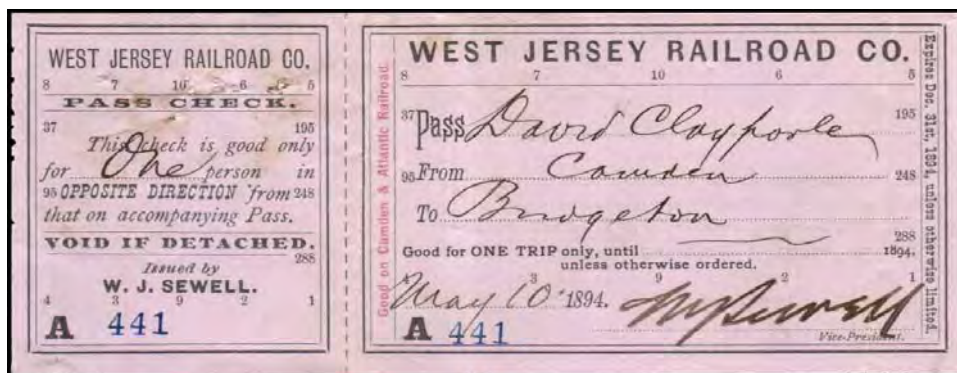 WEST JERSEY RAILROAD CO.
8 7 10 6 5
PASS CHECK.
37 195
This check is good only
for One person in
95 OPPOSITE DIRECTION from 248
that on accompanying Pass.
VOID IF DETACHED.
288
Issued by
W. J. SEWELL.
4 3 9 2 1
A 441
Good on Camden & Atlantic Railroad.
WEST JERSEY RAILROAD CO.
8 7 10 6 5
37 Pass David Claypoole 195
95 From Camden 248
To Bridgeton
288
Good for ONE TRIP only, until 1894,
unless otherwise ordered.
3 9 2 1
May 10 1894. WJSewell
A 441 Vice-President.
Expires Dec. 31st, 1894, unless otherwise limited.